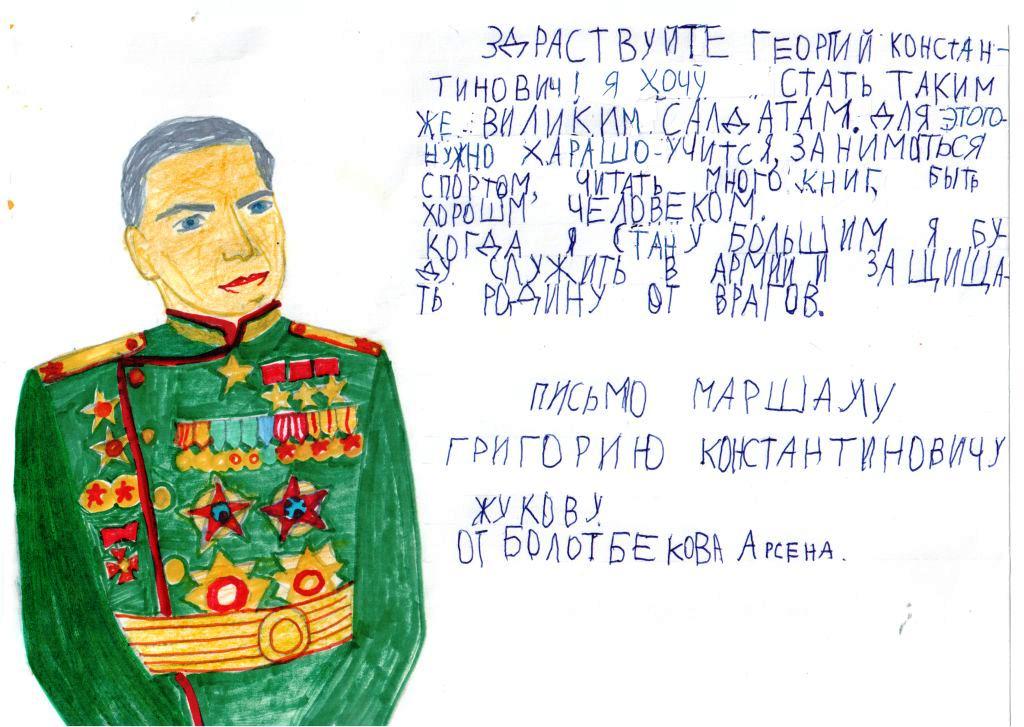 ЗДРАСТВУЙТЕ ГЕОРГИЙ КОНСТАН-
ТИНОВИЧ! Я ХОЧУ СТАТЬ ТАКИМ
ЖЕ ВИЛИКИМ САЛДАТАМ. ДЛЯ ЭТОГО
НУЖНО ХАРАШО УЧИТСЯ, ЗАНИМАТЬСЯ
СПОРТОМ, ЧИТАТЬ МНОГО КНИГ, БЫТЬ
ХОРОШИМ ЧЕЛОВЕКОМ.
КОГДА Я СТАНУ БОЛЬШИМ Я БУ-
ДУ СЛУЖИТЬ В АРМИИ И ЗАЩИЩА-
ТЬ РОДИНУ ОТ ВРАГОВ.
ПИСЬМО МАРШАЛУ
ГРИГОРИЮ КОНСТАНТИНОВИЧУ
ЖУКОВУ.
ОТ БОЛОТБЕКОВА АРСЕНА.